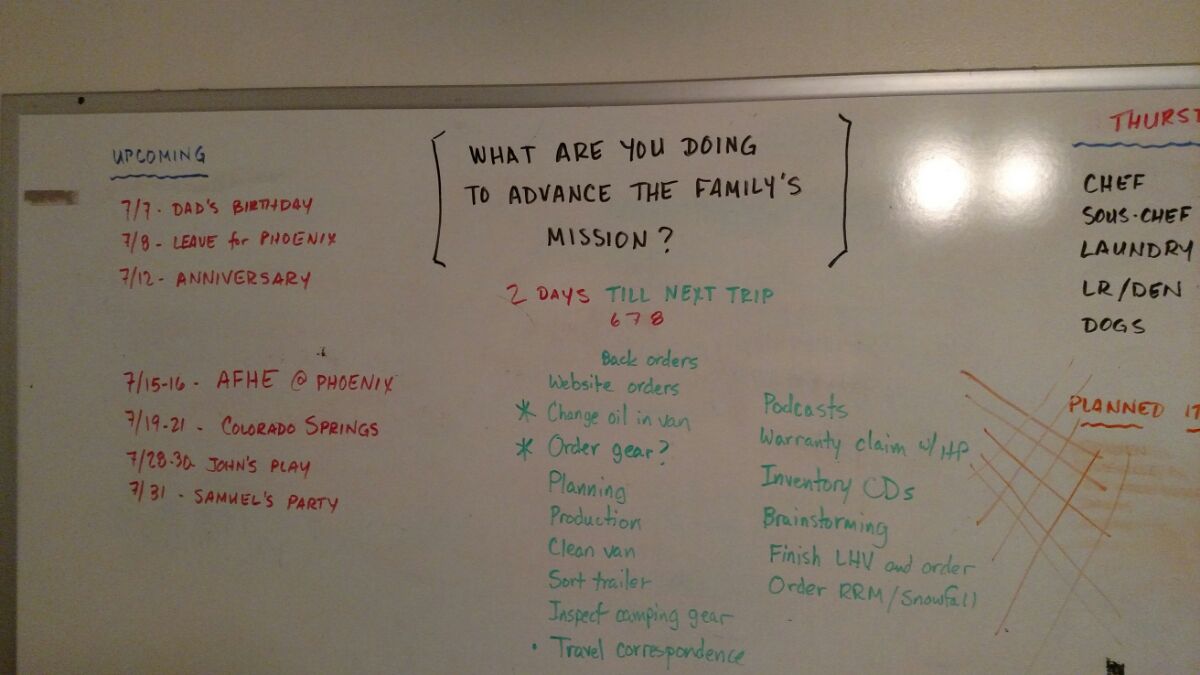 UPCOMING
7/7 - DAD'S BIRTHDAY
7/8 - LEAVE for PHOENIX
7/12 - ANNIVERSARY
7/15-16 - AFHE @ PHOENIX
7/19-21 - COLORADO SPRINGS
7/28-30- JOHN'S PLAY
7/31 - SAMUEL'S PARTY
WHAT ARE YOU DOING
TO ADVANCE THE FAMILY'S
MISSION?
2 DAYS TILL NEXT TRIP
6 7 8
Back orders
Website orders
* Change oil in van
* Order gear?
Planning
Production
Clean van
Sort trailer
Inspect camping gear
• Travel correspondence
Podcasts
Warranty claim w/ HP
Inventory CDs
Brainstorming
Finish LHV and order
Order RRM/Snowfall
THURST
CHEF
SOUS-CHEF
LAUNDRY
LR/DEN
DOGS
PLANNED IT